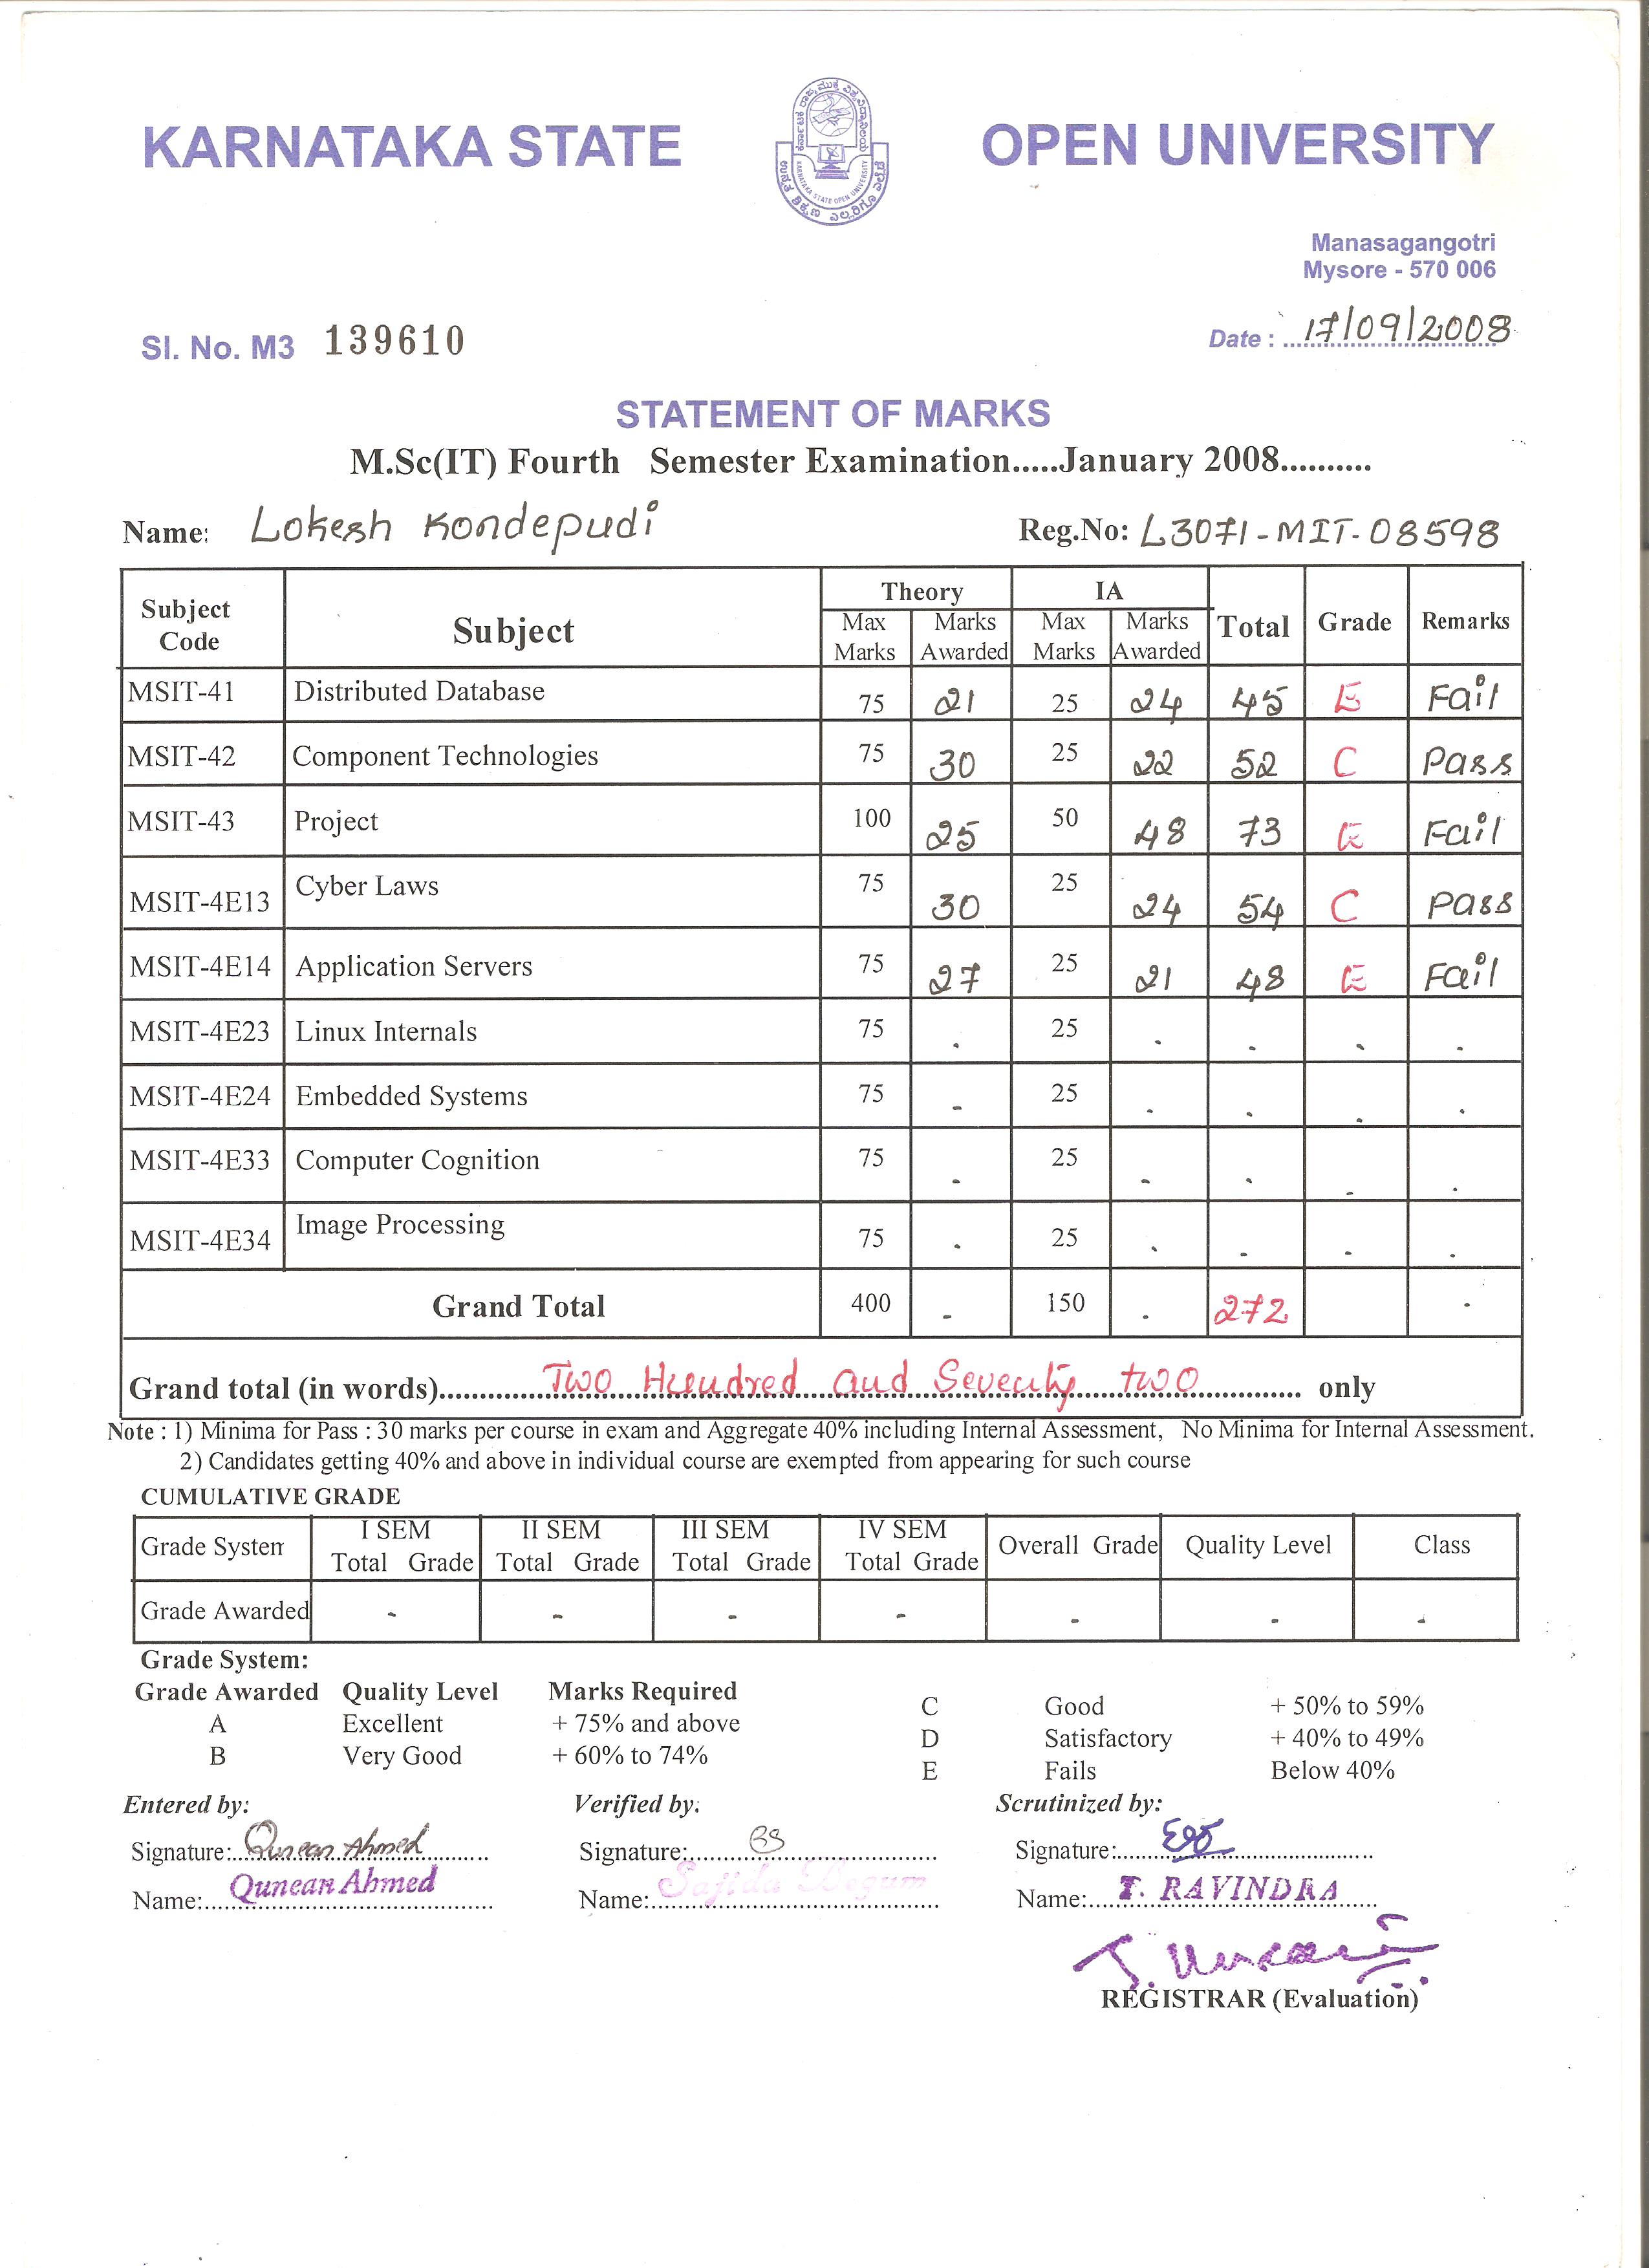 KARNATAKA STATE OPEN UNIVERSITY
ಕರ್ನಾಟಕ ರಾಜ್ಯ ಮುಕ್ತ ವಿಶ್ವವಿದ್ಯಾನಿಲಯ
KARNATAKA STATE OPEN UNIVERSITY
ಉನ್ನತ ಶಿಕ್ಷಣ ಎಲ್ಲರಿಗೂ ಎಲ್ಲೆಡೆ
Manasagangotri
Mysore - 570 006
Sl. No. M3 139610 Date : 17/09/2008
STATEMENT OF MARKS
M.Sc(IT) Fourth Semester Examination.....January 2008..........
Name: Lokesh Kondepudi Reg.No: L3071-MIT-08598
Subject Code Subject Theory Max Marks Marks Awarded IA Max Marks Marks Awarded Total Grade Remarks
MSIT-41 Distributed Database 75 21 25 24 45 E Fail
MSIT-42 Component Technologies 75 30 25 22 52 C Pass
MSIT-43 Project 100 25 50 48 73 E Fail
MSIT-4E13 Cyber Laws 75 30 25 24 54 C Pass
MSIT-4E14 Application Servers 75 27 25 21 48 E Fail
MSIT-4E23 Linux Internals 75 - 25 - - - -
MSIT-4E24 Embedded Systems 75 - 25 - - - -
MSIT-4E33 Computer Cognition 75 - 25 - - - -
MSIT-4E34 Image Processing 75 - 25 - - - -
Grand Total 400 - 150 - 272 -
Grand total (in words)..... Two Hundred and Seventy two ..... only
Note : 1) Minima for Pass : 30 marks per course in exam and Aggregate 40% including Internal Assessment, No Minima for Internal Assessment.
2) Candidates getting 40% and above in individual course are exempted from appearing for such course
CUMULATIVE GRADE
Grade System I SEM Total Grade II SEM Total Grade III SEM Total Grade IV SEM Total Grade Overall Grade Quality Level Class
Grade Awarded - - - - - - -
Grade System:
Grade Awarded Quality Level Marks Required
A Excellent + 75% and above
B Very Good + 60% to 74%
C Good + 50% to 59%
D Satisfactory + 40% to 49%
E Fails Below 40%
Entered by: Verified by: Scrutinized by:
Signature: Qunean Ahmed Signature: BS Signature:
Name: Qunean Ahmed Name: Sajida Begum Name: T. RAVINDRA
REGISTRAR (Evaluation)